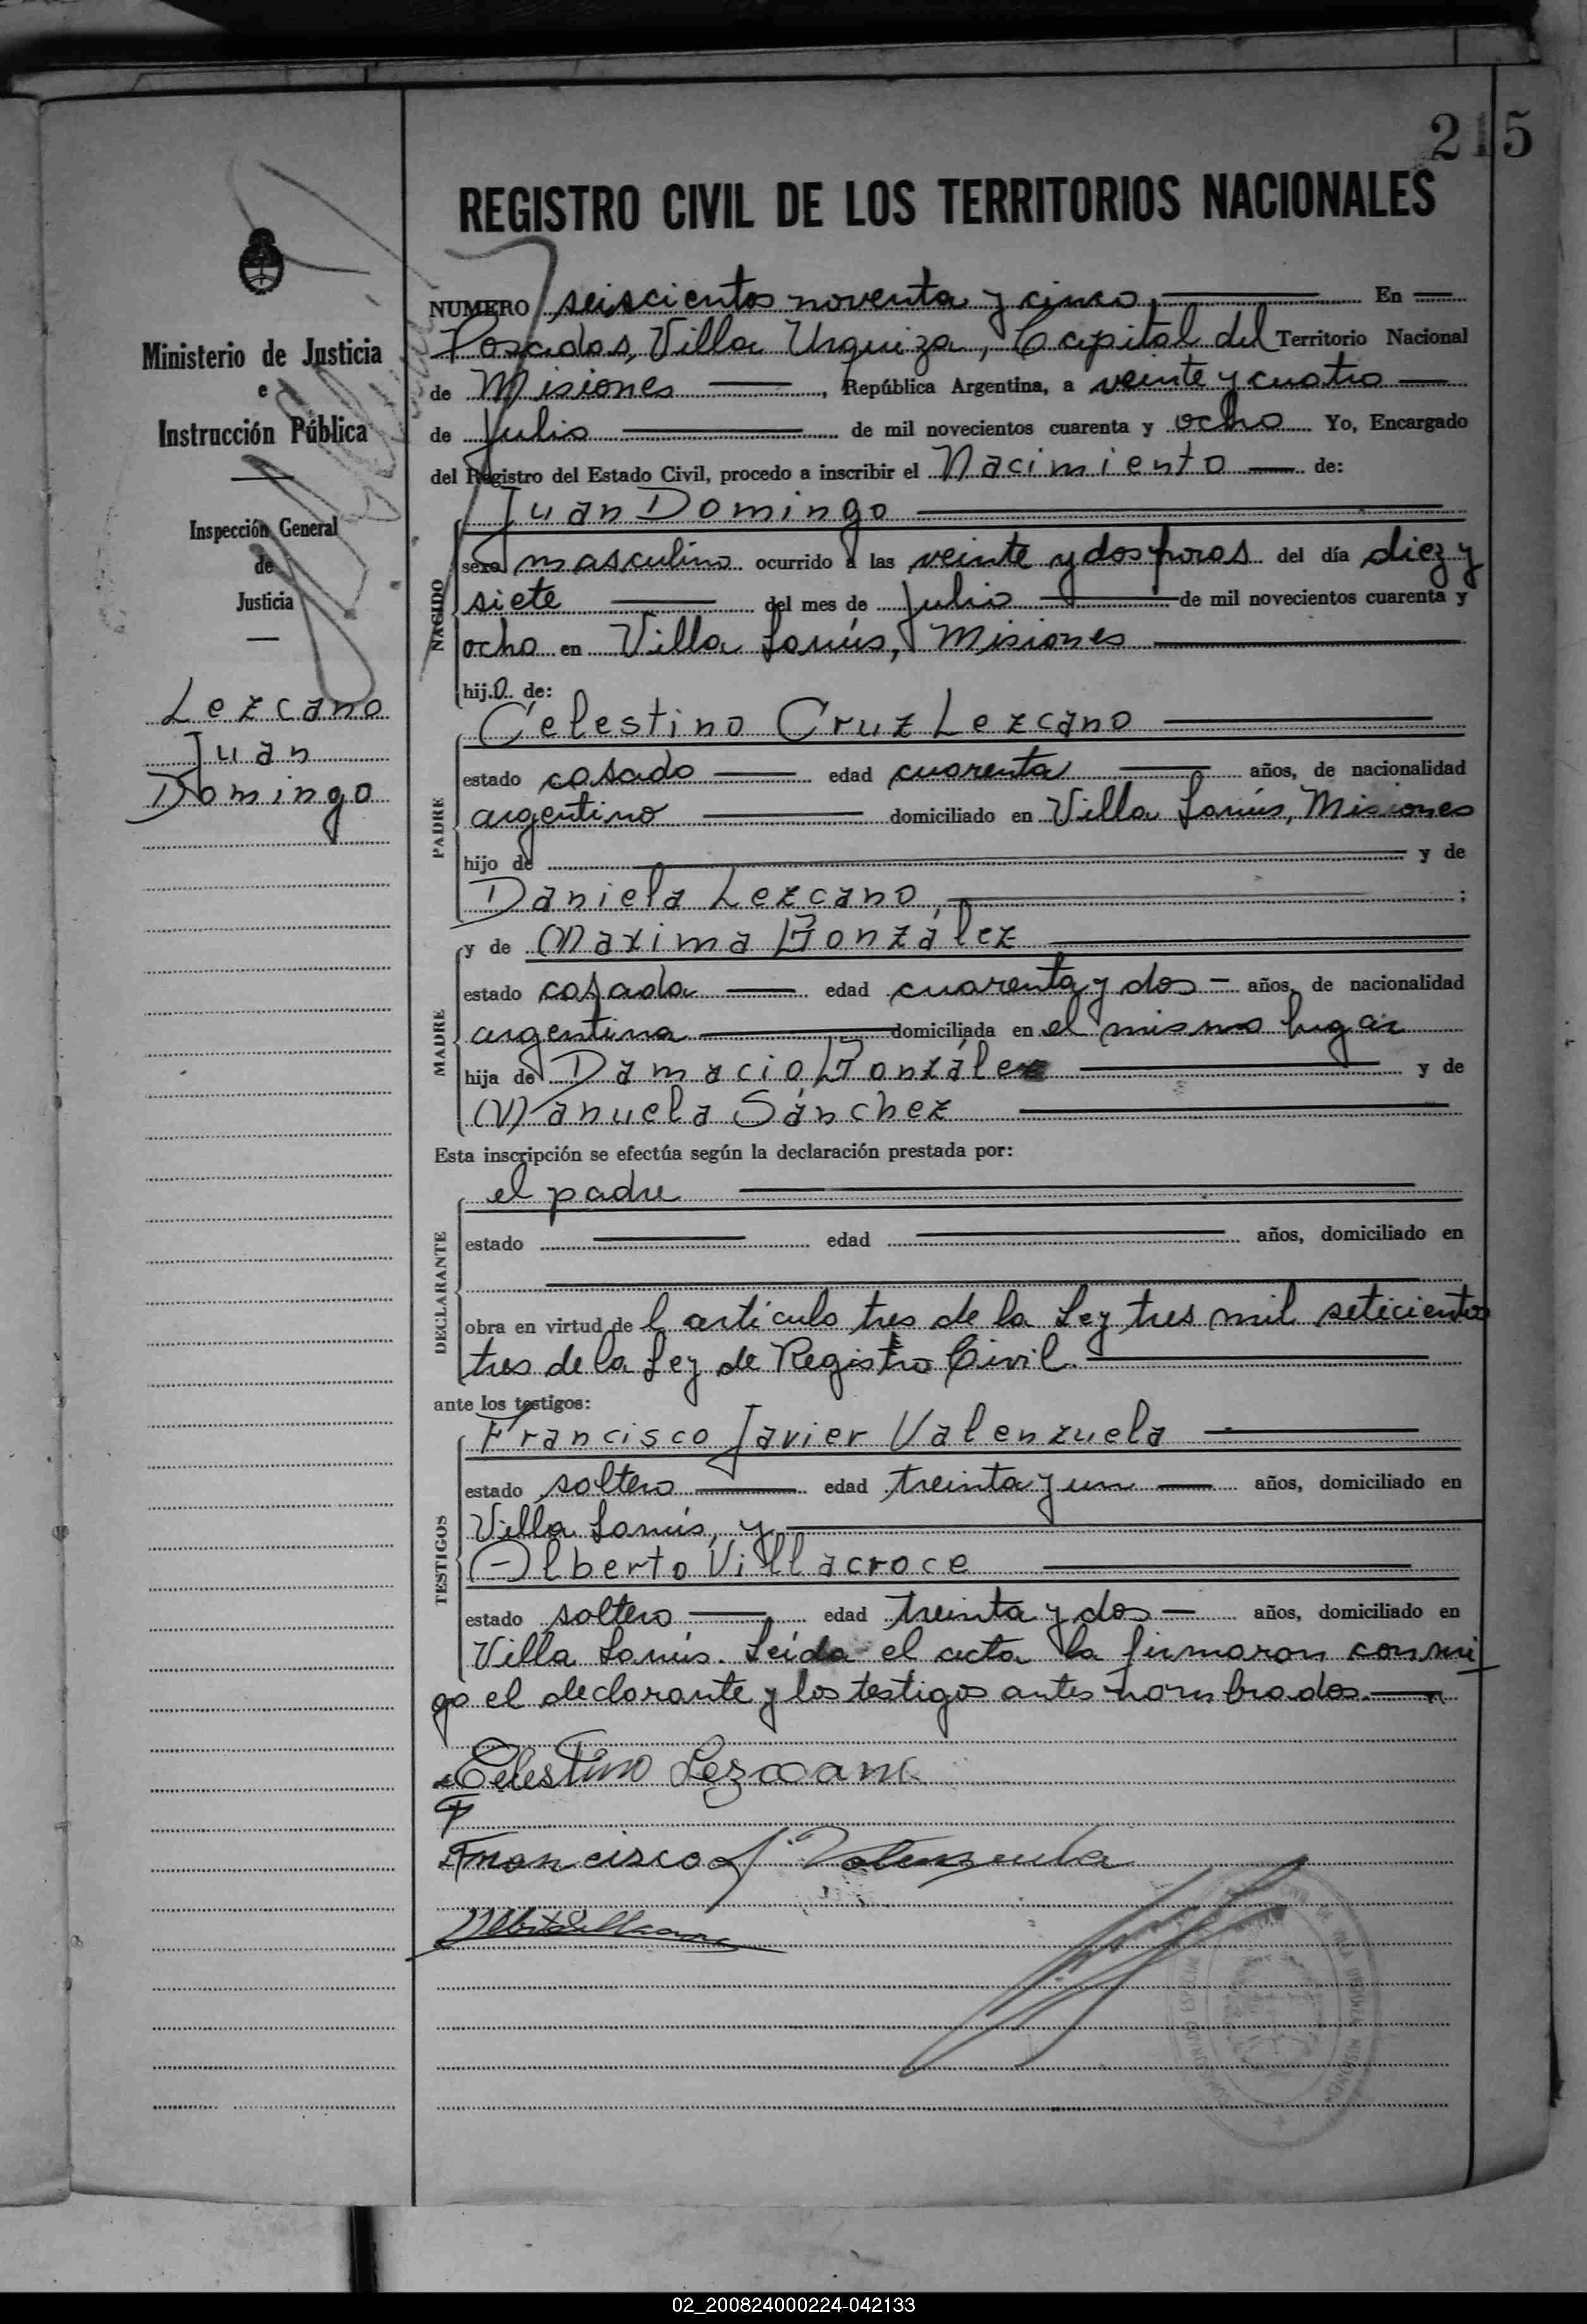 215
REGISTRO CIVIL DE LOS TERRITORIOS NACIONALES
Ministerio de Justicia
e
Instrucción Pública
Inspección General
de
Justicia
Lezcano
Juan
Domingo
NUMERO seiscientos noventa y cinco, En
Posadas, Villa Urquiza, Capital del Territorio Nacional
de Misiones, República Argentina, a veinte y cuatro
de Julio de mil novecientos cuarenta y ocho Yo, Encargado
del Registro del Estado Civil, procedo a inscribir el Nacimiento de:
NACIDO
Juan Domingo
sexo masculino ocurrido a las veinte y dos horas del día diez y
siete del mes de Julio de mil novecientos cuarenta y
ocho en Villa Lanús, Misiones
hijo de:
PADRE
Celestino Cruz Lezcano
estado casado edad cuarenta años, de nacionalidad
argentino domiciliado en Villa Lanús, Misiones
hijo de y de
Daniela Lezcano, ;
MADRE
y de Maxima González
estado casada edad cuarenta y dos años, de nacionalidad
argentina domiciliada en el mismo lugar
hija de Damacio González y de
Manuela Sánchez
Esta inscripción se efectúa según la declaración prestada por:
DECLARANTE
el padre
estado edad años, domiciliado en
obra en virtud del artículo tres de la Ley tres mil seticientos
tres de la Ley de Registro Civil.
ante los testigos:
TESTIGOS
Francisco Javier Valenzuela
estado soltero edad treinta y un años, domiciliado en
Villa Lanús, y
Alberto Villacroce
estado soltero edad treinta y dos años, domiciliado en
Villa Lanús. Leída el acta la firmaron conmi
go el declarante y los testigos antes nombrados.
Celestino Lezcano
Francisco J. Valenzuela
02_200824000224-042133